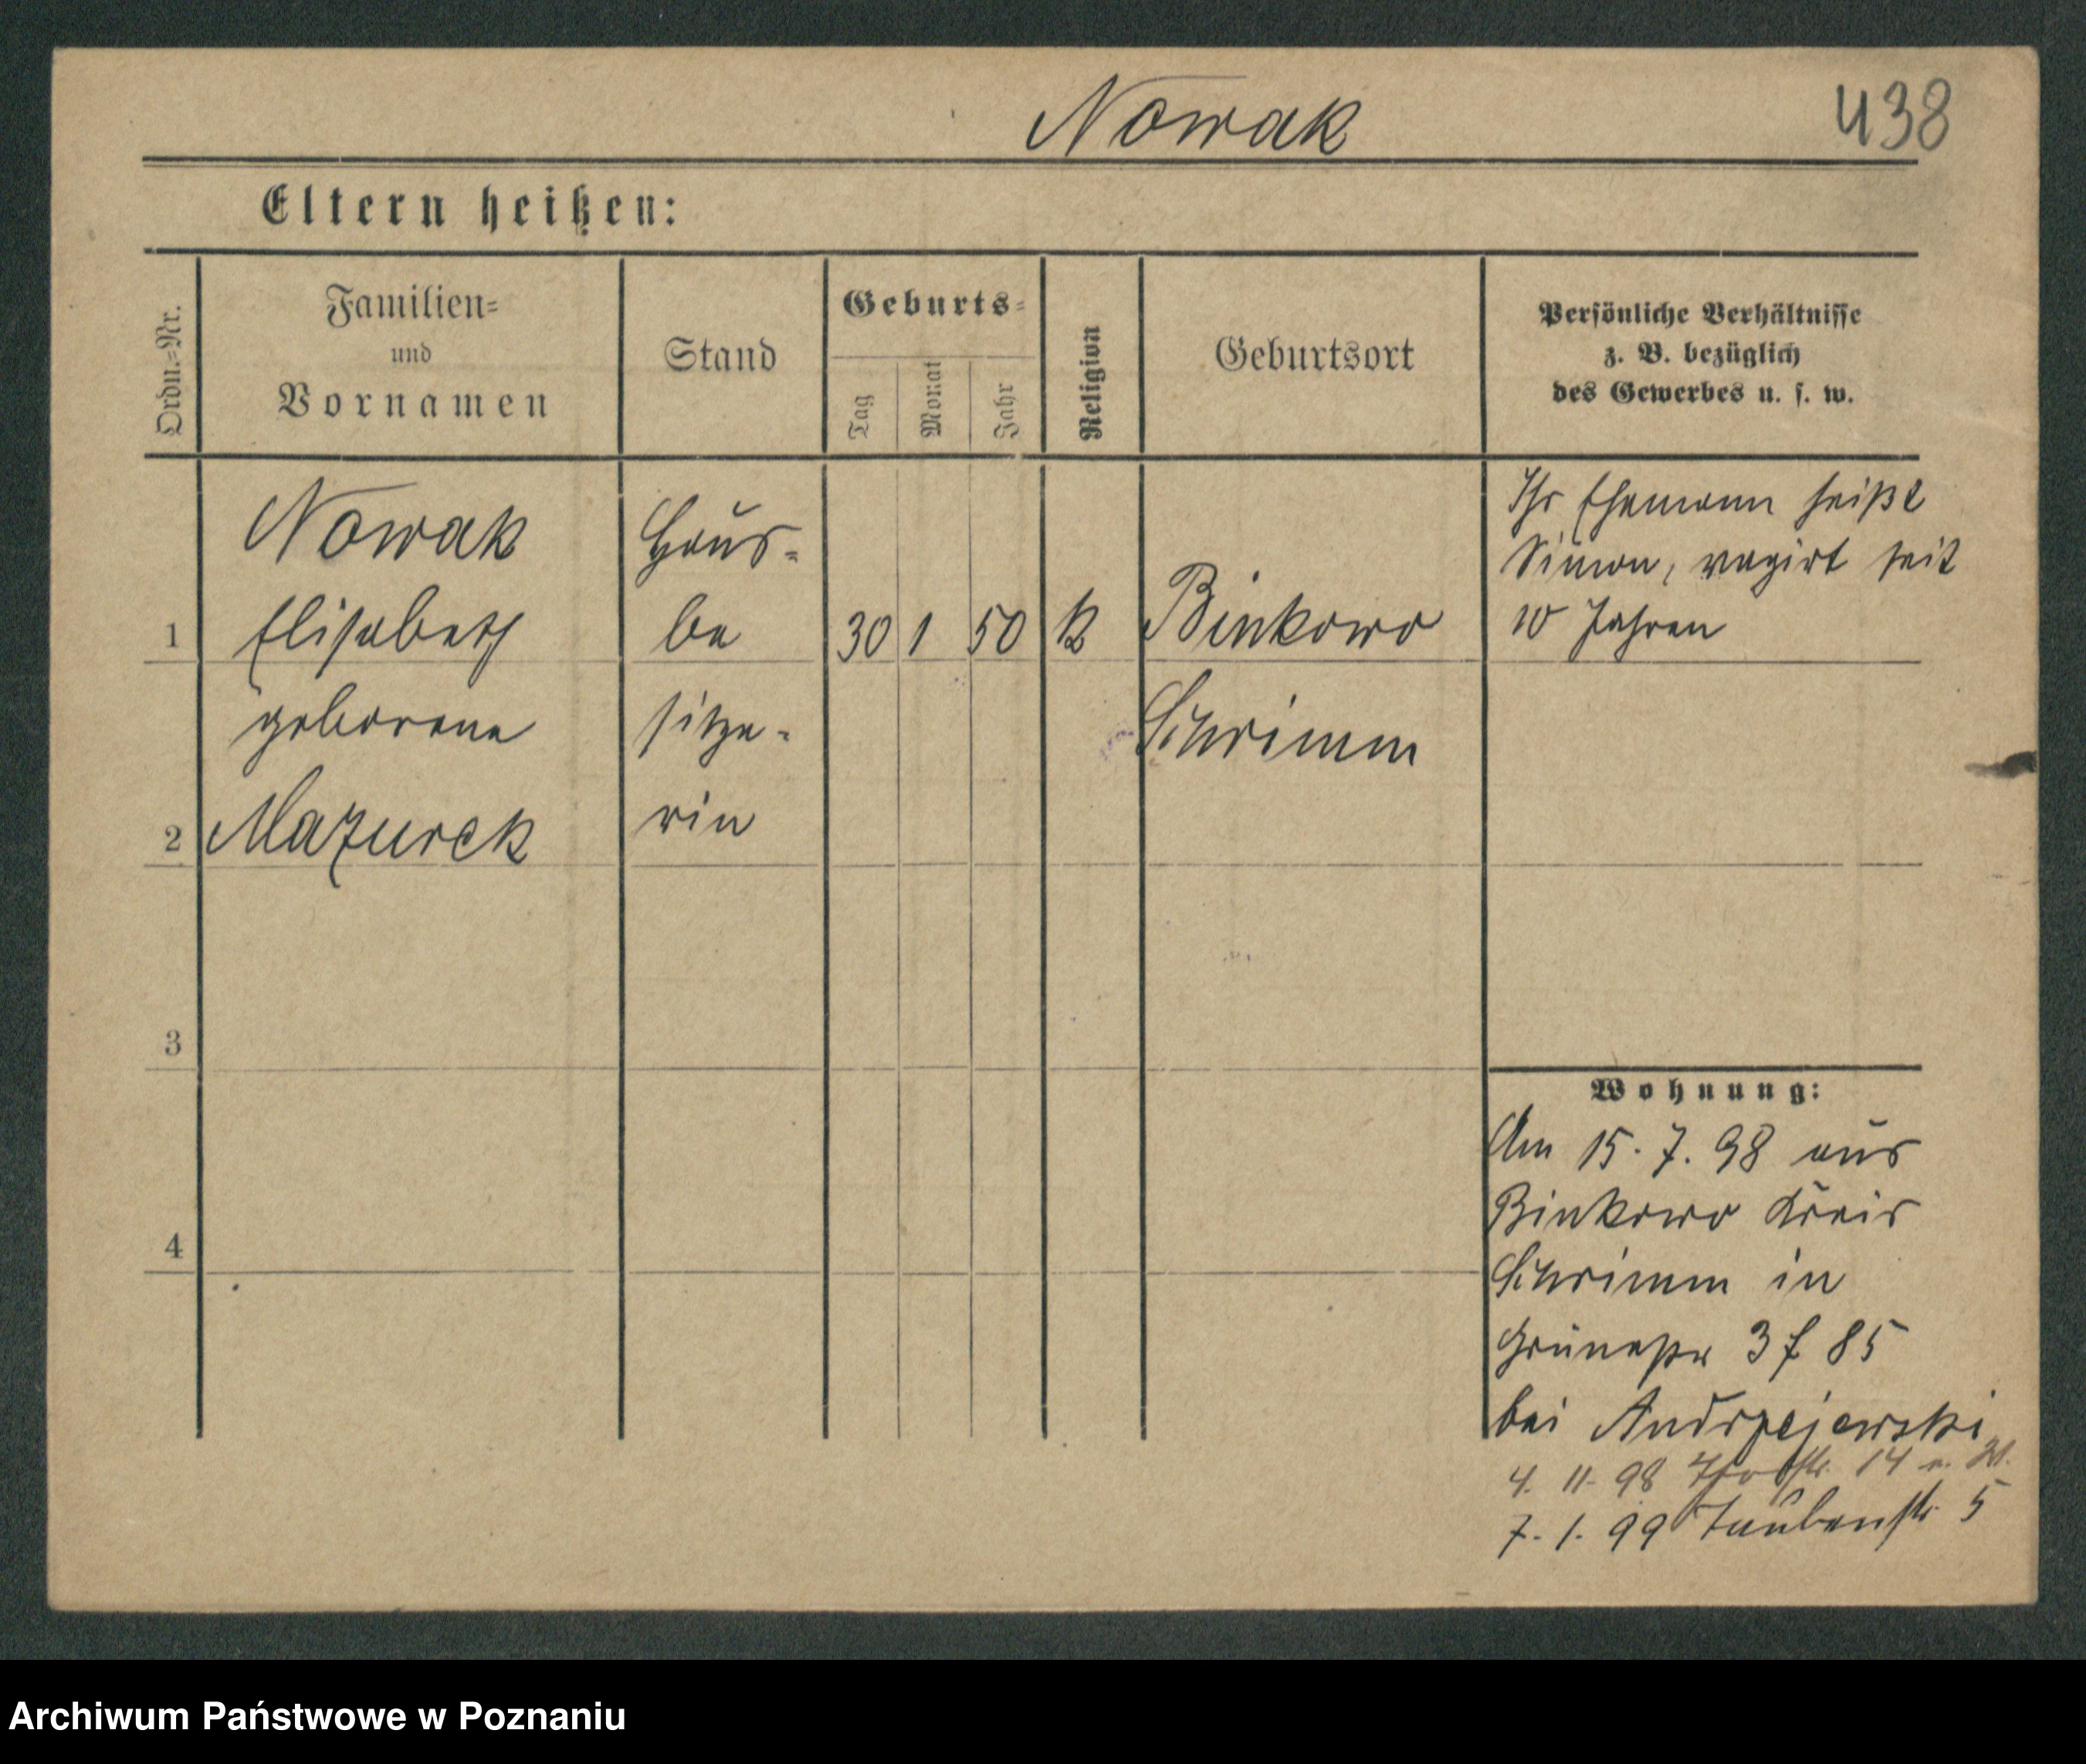 Nowak
438
Eltern heißen:
Ordn.-Nr.
Familien-
und
Vornamen
Stand
Geburts-
Tag
Monat
Jahr
Religion
Geburtsort
Persönliche Verhältnisse
z. B. bezüglich
des Gewerbes u. s. w.
1
Nowak
Elisabeth
geborene
2
Mazurek
Haus-
be
sitze-
rin
30 1 50 k
Binkowo
Schrimm
Ihr Ehemann heißt
Simon, vagirt seit
10 Jahren
3
4
Wohnung:
Am 15. 7. 98 aus
Binkowo Kreis
Schrimm in
3 f 85
bei Andrzejewski
4. 11. 98 14
7. 1. 99 Taubenstr 5
Archiwum Państwowe w Poznaniu